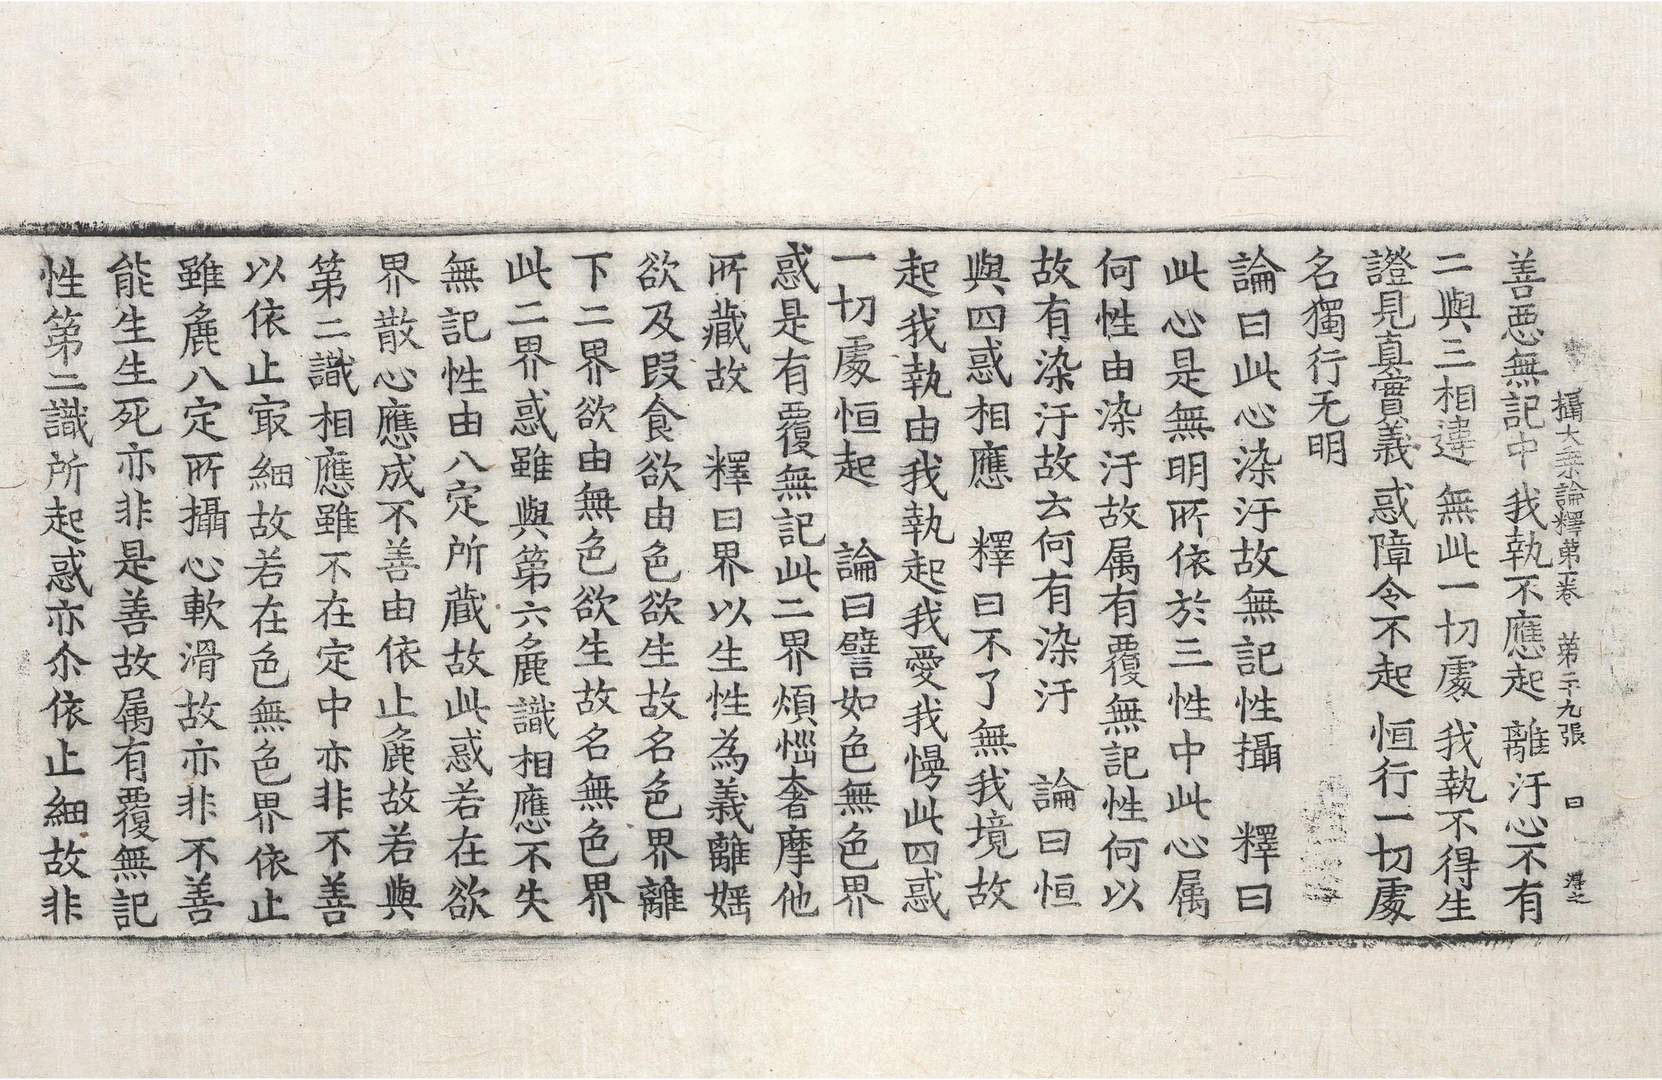 攝大乗論釋第一卷　第二十九張　日　得之
善惡無記中我執不應起離汙心不有
二與三相違無此一切處我執不得生
證見真實義惑障令不起恒行一切處
名獨行无明
論曰此心染汙故無記性攝　釋曰
此心是無明所依於三性中此心属
何性由染汙故属有覆無記性何以
故有染汙故云何有染汙　論曰恒
與四惑相應　釋曰不了無我境故
起我執由我執起我愛我慢此四惑
一切處恒起　論曰譬如色無色界
惑是有覆無記此二界煩惱奢摩他
所藏故　釋曰界以生性為義離婬
欲及段食欲由色欲生故名色界離
下二界欲由無色欲生故名無色界
此二界惑雖與第六麁識相應不失
無記性由八定所藏故此惑若在欲
界散心應成不善由依止麁故若與
第二識相應雖不在定中亦非不善
以依止㝡細故若在色無色界依止
雖麁八定所攝心軟滑故亦非不善
能生生死亦非是善故属有覆無記
性第二識所起惑亦尒依止細故非